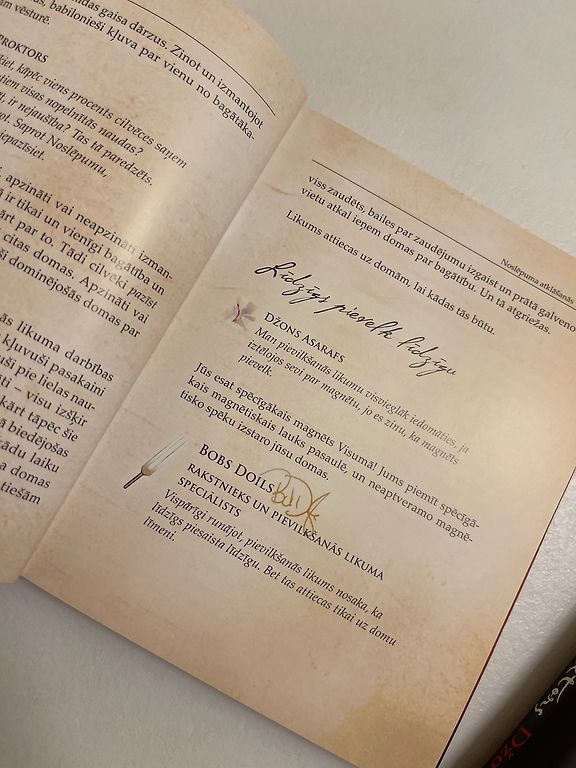 das gaisa dārzus. Zinot un izmantojot
babilonieši kļuva par vienu no bagātāka-
vēsturē.
PROKTORS
kāpēc viens procents cilvēces saņem
visas nopelnītās naudas?
ir nejaušība? Tas tā paredzēts.
Saprot Noslēpumu,
iepazīsiet.
apzināti vai neapzināti izman-
ir tikai un vienīgi bagātība un
par to. Tādi cilvēki pazīst
citas domas. Apzināti vai
dominējošās domas par
likuma darbības
kļuvuši pasakaini
pie lielas nau-
– visu izšķir
tāpēc šie
biedējošas
laiku
domas
tiešām
Noslēpuma atklāšanās
viss zaudēts, bailes par zaudējumu izgaist un prātā galveno
vietu atkal ieņem domas par bagātību. Un tā atgriežas.
Likums attiecas uz domām, lai kādas tās būtu.
Līdzīgs pievelk līdzīgu
DŽONS ASARAFS
Man pievilkšanās likumu visvieglāk iedomāties, ja
iztēlojos sevi par magnētu, jo es zinu, ka magnēts
pievelk.
Jūs esat spēcīgākais magnēts Visumā! Jums piemīt spēcīgā-
kais magnētiskais lauks pasaulē, un neaptveramo magnē-
tisko spēku izstaro jūsu domas.
BOBS DOILS
RAKSTNIEKS UN PIEVILKŠANĀS LIKUMA
SPECIĀLISTS
Vispārīgi runājot, pievilkšanās likums nosaka, ka
līdzīgs piesaista līdzīgu. Bet tas attiecas tikai uz domu
līmeni.